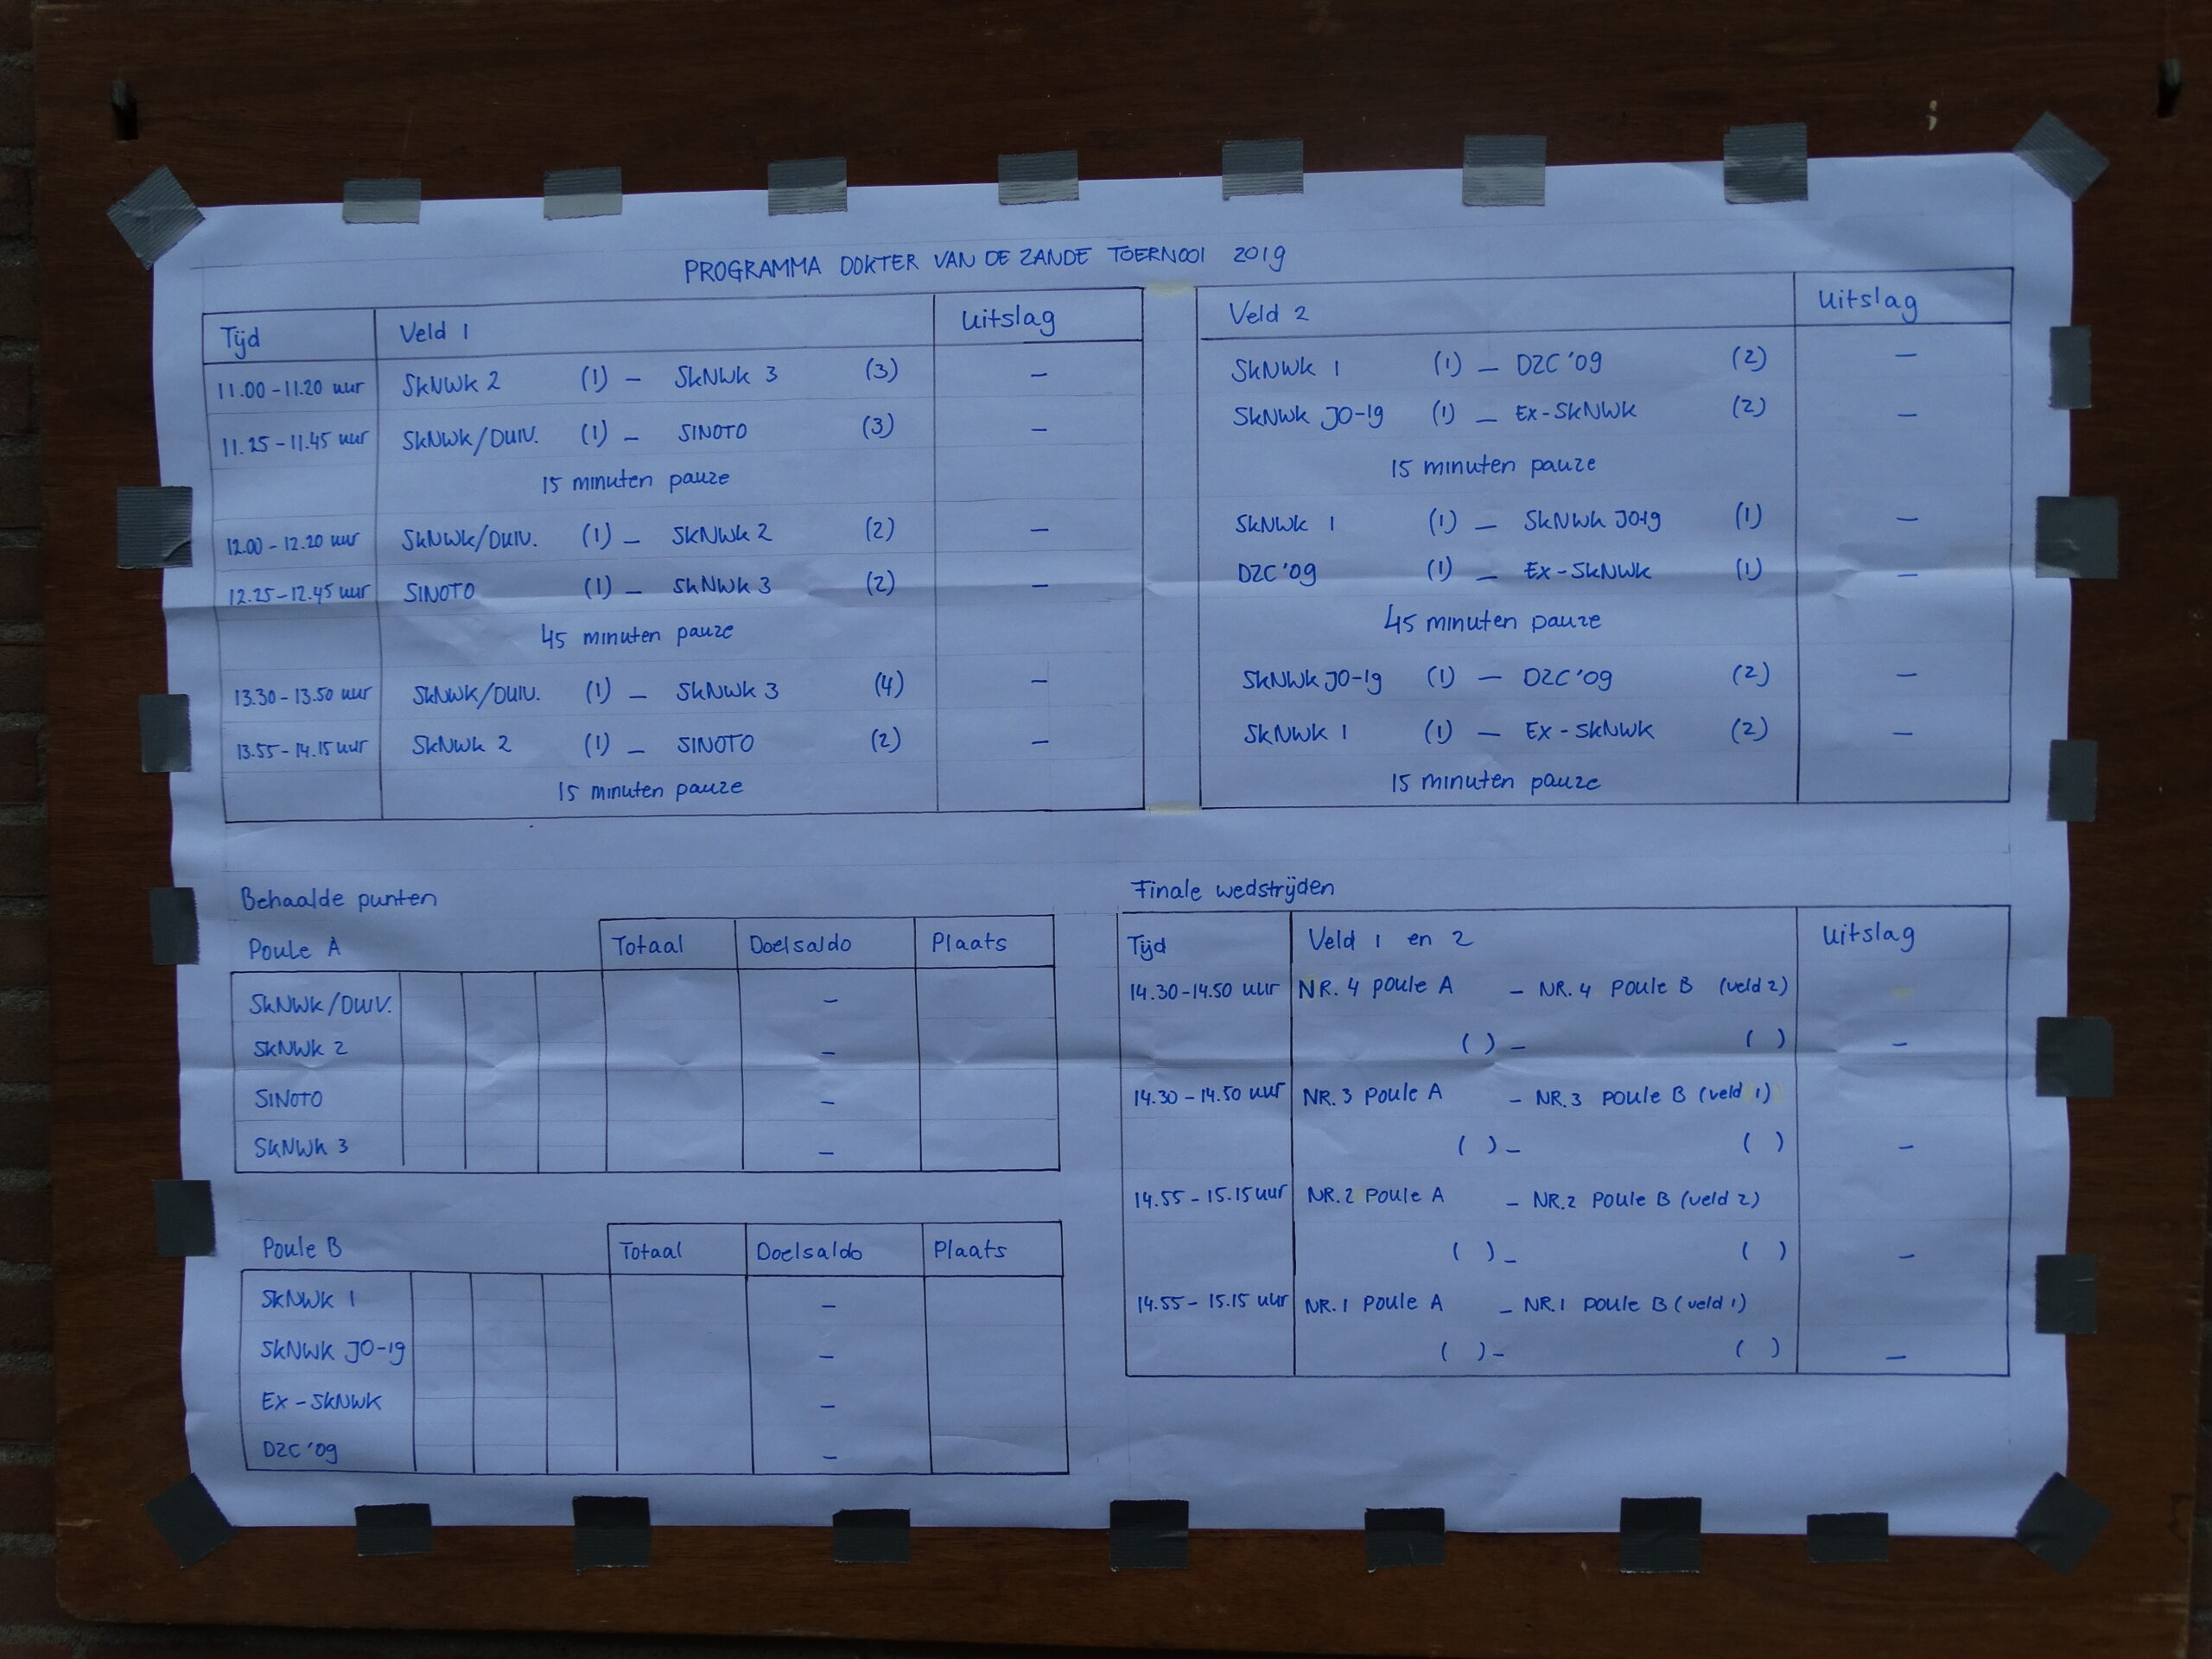 PROGRAMMA DOKTER VAN DE ZANDE TOERNOOI 2019
Tijd Veld 1 Uitslag
11.00 - 11.20 uur SKNWK 2 (1) - SKNWK 3 (3) -
11.25 - 11.45 uur SKNWK/DUIV. (1) - SINOTO (3) -
15 minuten pauze
12.00 - 12.20 uur SKNWK/DUIV. (1) - SKNWK 2 (2) -
12.25 - 12.45 uur SINOTO (1) - SKNWK 3 (2) -
45 minuten pauze
13.30 - 13.50 uur SKNWK/DUIV. (1) - SKNWK 3 (4) -
13.55 - 14.15 uur SKNWK 2 (1) - SINOTO (2) -
15 minuten pauze
Veld 2 Uitslag
SKNWK 1 (1) - DZC '09 (2) -
SKNWK JO-19 (1) - EX-SKNWK (2) -
15 minuten pauze
SKNWK 1 (1) - SKNWK JO-19 (1) -
DZC '09 (1) - EX-SKNWK (1) -
45 minuten pauze
SKNWK JO-19 (1) - DZC '09 (2) -
SKNWK 1 (1) - EX-SKNWK (2) -
15 minuten pauze
Behaalde punten
Poule A Totaal Doelsaldo Plaats
SKNWK/DUIV. -
SKNWK 2 -
SINOTO -
SKNWK 3 -
Poule B Totaal Doelsaldo Plaats
SKNWK 1 -
SKNWK JO-19 -
EX-SKNWK -
DZC '09 -
Finale wedstrijden
Tijd Veld 1 en 2 Uitslag
14.30 - 14.50 uur NR. 4 Poule A - NR. 4 Poule B (veld 2)
( ) - ( ) -
14.30 - 14.50 uur NR. 3 Poule A - NR. 3 Poule B (veld 1)
( ) - ( ) -
14.55 - 15.15 uur NR. 2 Poule A - NR. 2 Poule B (veld 2)
( ) - ( ) -
14.55 - 15.15 uur NR. 1 Poule A - NR. 1 Poule B (veld 1)
( ) - ( ) -